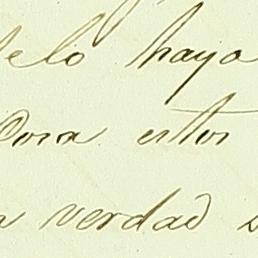 elo haya
Dora estos
verdad